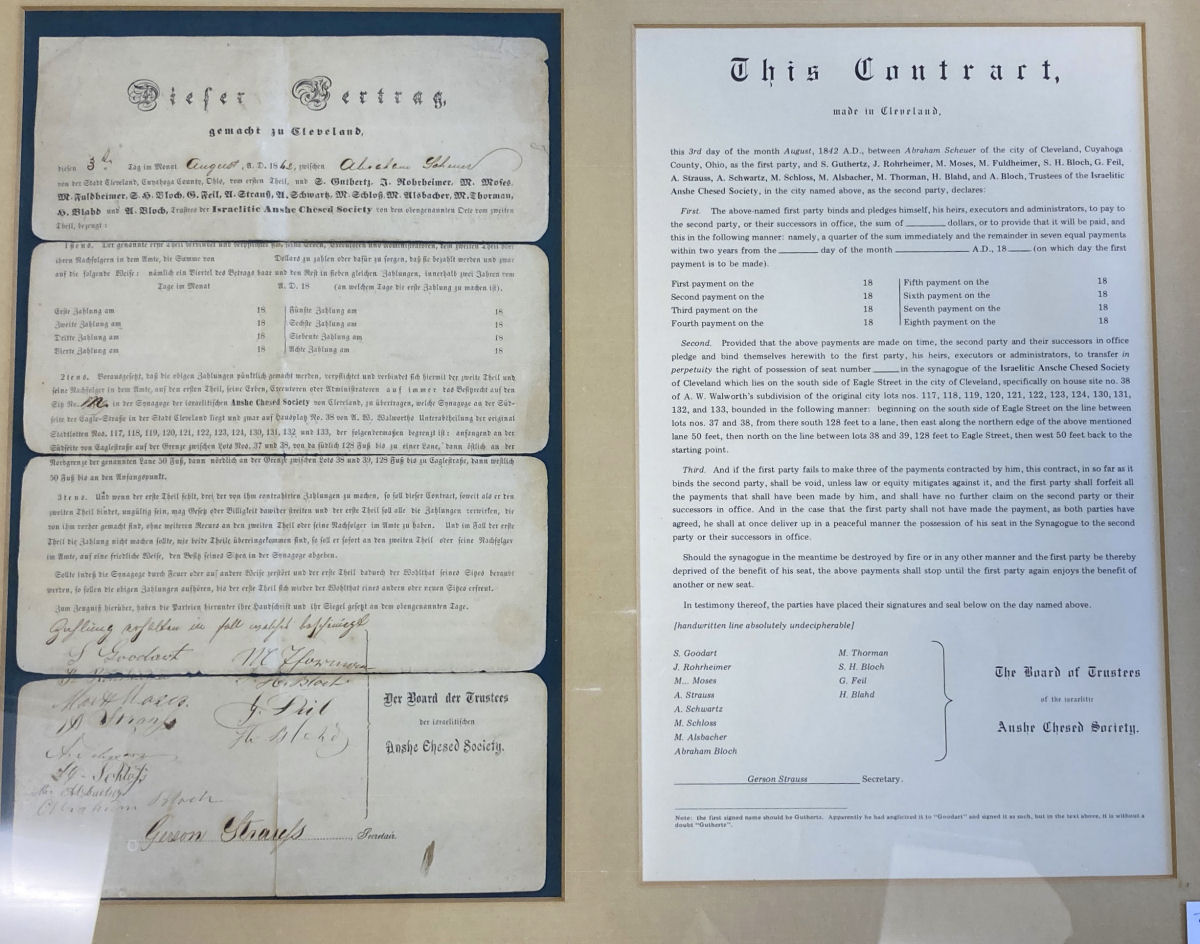 Dieser Vertrag,
gemacht zu Cleveland,
diesen 3ten Tag im Monat August, A. D. 1842, zwischen Abraham Scheuer
von der Stadt Cleveland, Cuyahoga County, Ohio, vom ersten Theil, und S. Guthertz, J. Rohrheimer, M. Moses,
M. Fuldheimer, S. H. Bloch, G. Feil, A. Strauß, A. Schwartz, M. Schloß, M. Alsbacher, M. Thorman,
H. Blahd und A. Bloch, Trustees der Israelitic Anshe Chesed Society von dem obengenannten Orte vom zweiten
Theil, bezeugt:
1stens. Der genannte erste Theil verbindet und verpflichtet sich, seine Erben, Executoren und Administratoren, dem zweiten Theil oder
ihren Nachfolgern in dem Amte, die Summe von Dollars zu zahlen oder dafür zu sorgen, daß sie bezahlt werden und zwar
auf die folgende Weise: nämlich ein Viertel des Betrags baar und den Rest in sieben gleichen Zahlungen, innerhalb zwei Jahren vom
Tage im Monat A. D. 18 (an welchem Tage die erste Zahlung zu machen ist).
Erste Zahlung am 18 Fünfte Zahlung am 18
Zweite Zahlung am 18 Sechste Zahlung am 18
Dritte Zahlung am 18 Siebente Zahlung am 18
Vierte Zahlung am 18 Achte Zahlung am 18
2tens. Vorausgesetzt, daß die obigen Zahlungen pünktlich gemacht werden, verpflichtet und verbindet sich hiermit der zweite Theil und
seine Nachfolger in dem Amte, auf den ersten Theil, seine Erben, Executoren oder Administratoren auf immer das Besitzrecht auf den
Sitz No. in der Synagoge der israelitischen Anshe Chesed Society von Cleveland, zu übertragen, welche Synagoge an der Süd-
seite der Eagle-Straße in der Stadt Cleveland liegt und zwar auf Hausplatz No. 38 von A. W. Walworths Unterabtheilung der original
Stadtlotten Nos. 117, 118, 119, 120, 121, 122, 123, 124, 130, 131, 132 und 133, der folgendermaßen begrenzt ist: anfangend an der
Südseite von Eaglestraße auf der Grenze zwischen Lots Nos. 37 und 38, von da südlich 128 Fuß bis zu einer Lane, dann östlich an der
Nordgrenze der genannten Lane 50 Fuß, dann nördlich an der Grenze zwischen Lots 38 und 39, 128 Fuß bis zu Eaglestraße, dann westlich
50 Fuß bis an den Anfangspunkt.
3tens. Und wenn der erste Theil fehlt, drei der von ihm contrahirten Zahlungen zu machen, so soll dieser Contract, soweit als er den
zweiten Theil bindet, ungültig sein, mag Gesetz oder Billigkeit dawider streiten und der erste Theil soll alle die Zahlungen verwirken, die
von ihm vorher gemacht sind, ohne weiteren Recurs an den zweiten Theil oder seine Nachfolger im Amte zu haben. Und im Fall der erste
Theil die Zahlung nicht machen sollte, wie beide Theile übereingekommen sind, so soll er sofort an den zweiten Theil oder seine Nachfolger
im Amte, auf eine friedliche Weise, den Besitz seines Sitzes in der Synagoge abgeben.
Sollte indeß die Synagoge durch Feuer oder auf andere Weise zerstört und der erste Theil dadurch der Wohlthat seines Sitzes beraubt
werden, so sollen die obigen Zahlungen aufhören, bis der erste Theil sich wieder der Wohlthat eines andern oder neuen Sitzes erfreut.
Zum Zeugniß hierüber, haben die Parteien hierunter ihre Handschrift und ihr Siegel gesetzt an dem obengenannten Tage.
Zahlung erhalten in full
S Goodart M Thorman
S. H. Bloch
M Moses G. Feil
A Strauß H. Blahd
A Schwarz
M. Schloß
M. Alsbacher
Abraham Bloch
Der Board der Trustees
der israelitischen
Anshe Chesed Society.
Gerson Strauss Secretair.
This Contract,
made in Cleveland,
this 3rd day of the month August, 1842 A.D., between Abraham Scheuer of the city of Cleveland, Cuyahoga
County, Ohio, as the first party, and S. Guthertz, J. Rohrheimer, M. Moses, M. Fuldheimer, S. H. Bloch, G. Feil,
A. Strauss, A. Schwartz, M. Schloss, M. Alsbacher, M. Thorman, H. Blahd, and A. Bloch, Trustees of the Israelitic
Anshe Chesed Society, in the city named above, as the second party, declares:
First. The above-named first party binds and pledges himself, his heirs, executors and administrators, to pay to
the second party, or their successors in office, the sum of ________ dollars, or to provide that it will be paid, and
this in the following manner: namely, a quarter of the sum immediately and the remainder in seven equal payments
within two years from the ________ day of the month ____________ A.D., 18 ____ (on which day the first
payment is to be made).
First payment on the 18 Fifth payment on the 18
Second payment on the 18 Sixth payment on the 18
Third payment on the 18 Seventh payment on the 18
Fourth payment on the 18 Eighth payment on the 18
Second. Provided that the above payments are made on time, the second party and their successors in office
pledge and bind themselves herewith to the first party, his heirs, executors or administrators, to transfer in
perpetuity the right of possession of seat number _____ in the synagogue of the Israelitic Ansche Chesed Society
of Cleveland which lies on the south side of Eagle Street in the city of Cleveland, specifically on house site no. 38
of A. W. Walworth's subdivision of the original city lots nos. 117, 118, 119, 120, 121, 122, 123, 124, 130, 131,
132, and 133, bounded in the following manner: beginning on the south side of Eagle Street on the line between
lots nos. 37 and 38, from there south 128 feet to a lane, then east along the northern edge of the above mentioned
lane 50 feet, then north on the line between lots 38 and 39, 128 feet to Eagle Street, then west 50 feet back to the
starting point.
Third. And if the first party fails to make three of the payments contracted by him, this contract, in so far as it
binds the second party, shall be void, unless law or equity mitigates against it, and the first party shall forfeit all
the payments that shall have been made by him, and shall have no further claim on the second party or their
successors in office. And in the case that the first party shall not have made the payment, as both parties have
agreed, he shall at once deliver up in a peaceful manner the possession of his seat in the Synagogue to the second
party or their successors in office.
Should the synagogue in the meantime be destroyed by fire or in any other manner and the first party be thereby
deprived of the benefit of his seat, the above payments shall stop until the first party again enjoys the benefit of
another or new seat.
In testimony thereof, the parties have placed their signatures and seal below on the day named above.
[handwritten line absolutely undecipherable]
S. Goodart M. Thorman
J. Rohrheimer S. H. Bloch
M... Moses G. Feil
A. Strauss H. Blahd
A. Schwartz
M. Schloss
M. Alsbacher
Abraham Bloch
The Board of Trustees
of the israelitic
Anshe Chesed Society.
Gerson Strauss Secretary.
Note: the first signed name should be Guthertz. Apparently he had anglicized it to "Goodart" and signed it as such, but in the text above, it is without a
doubt "Guthertz".